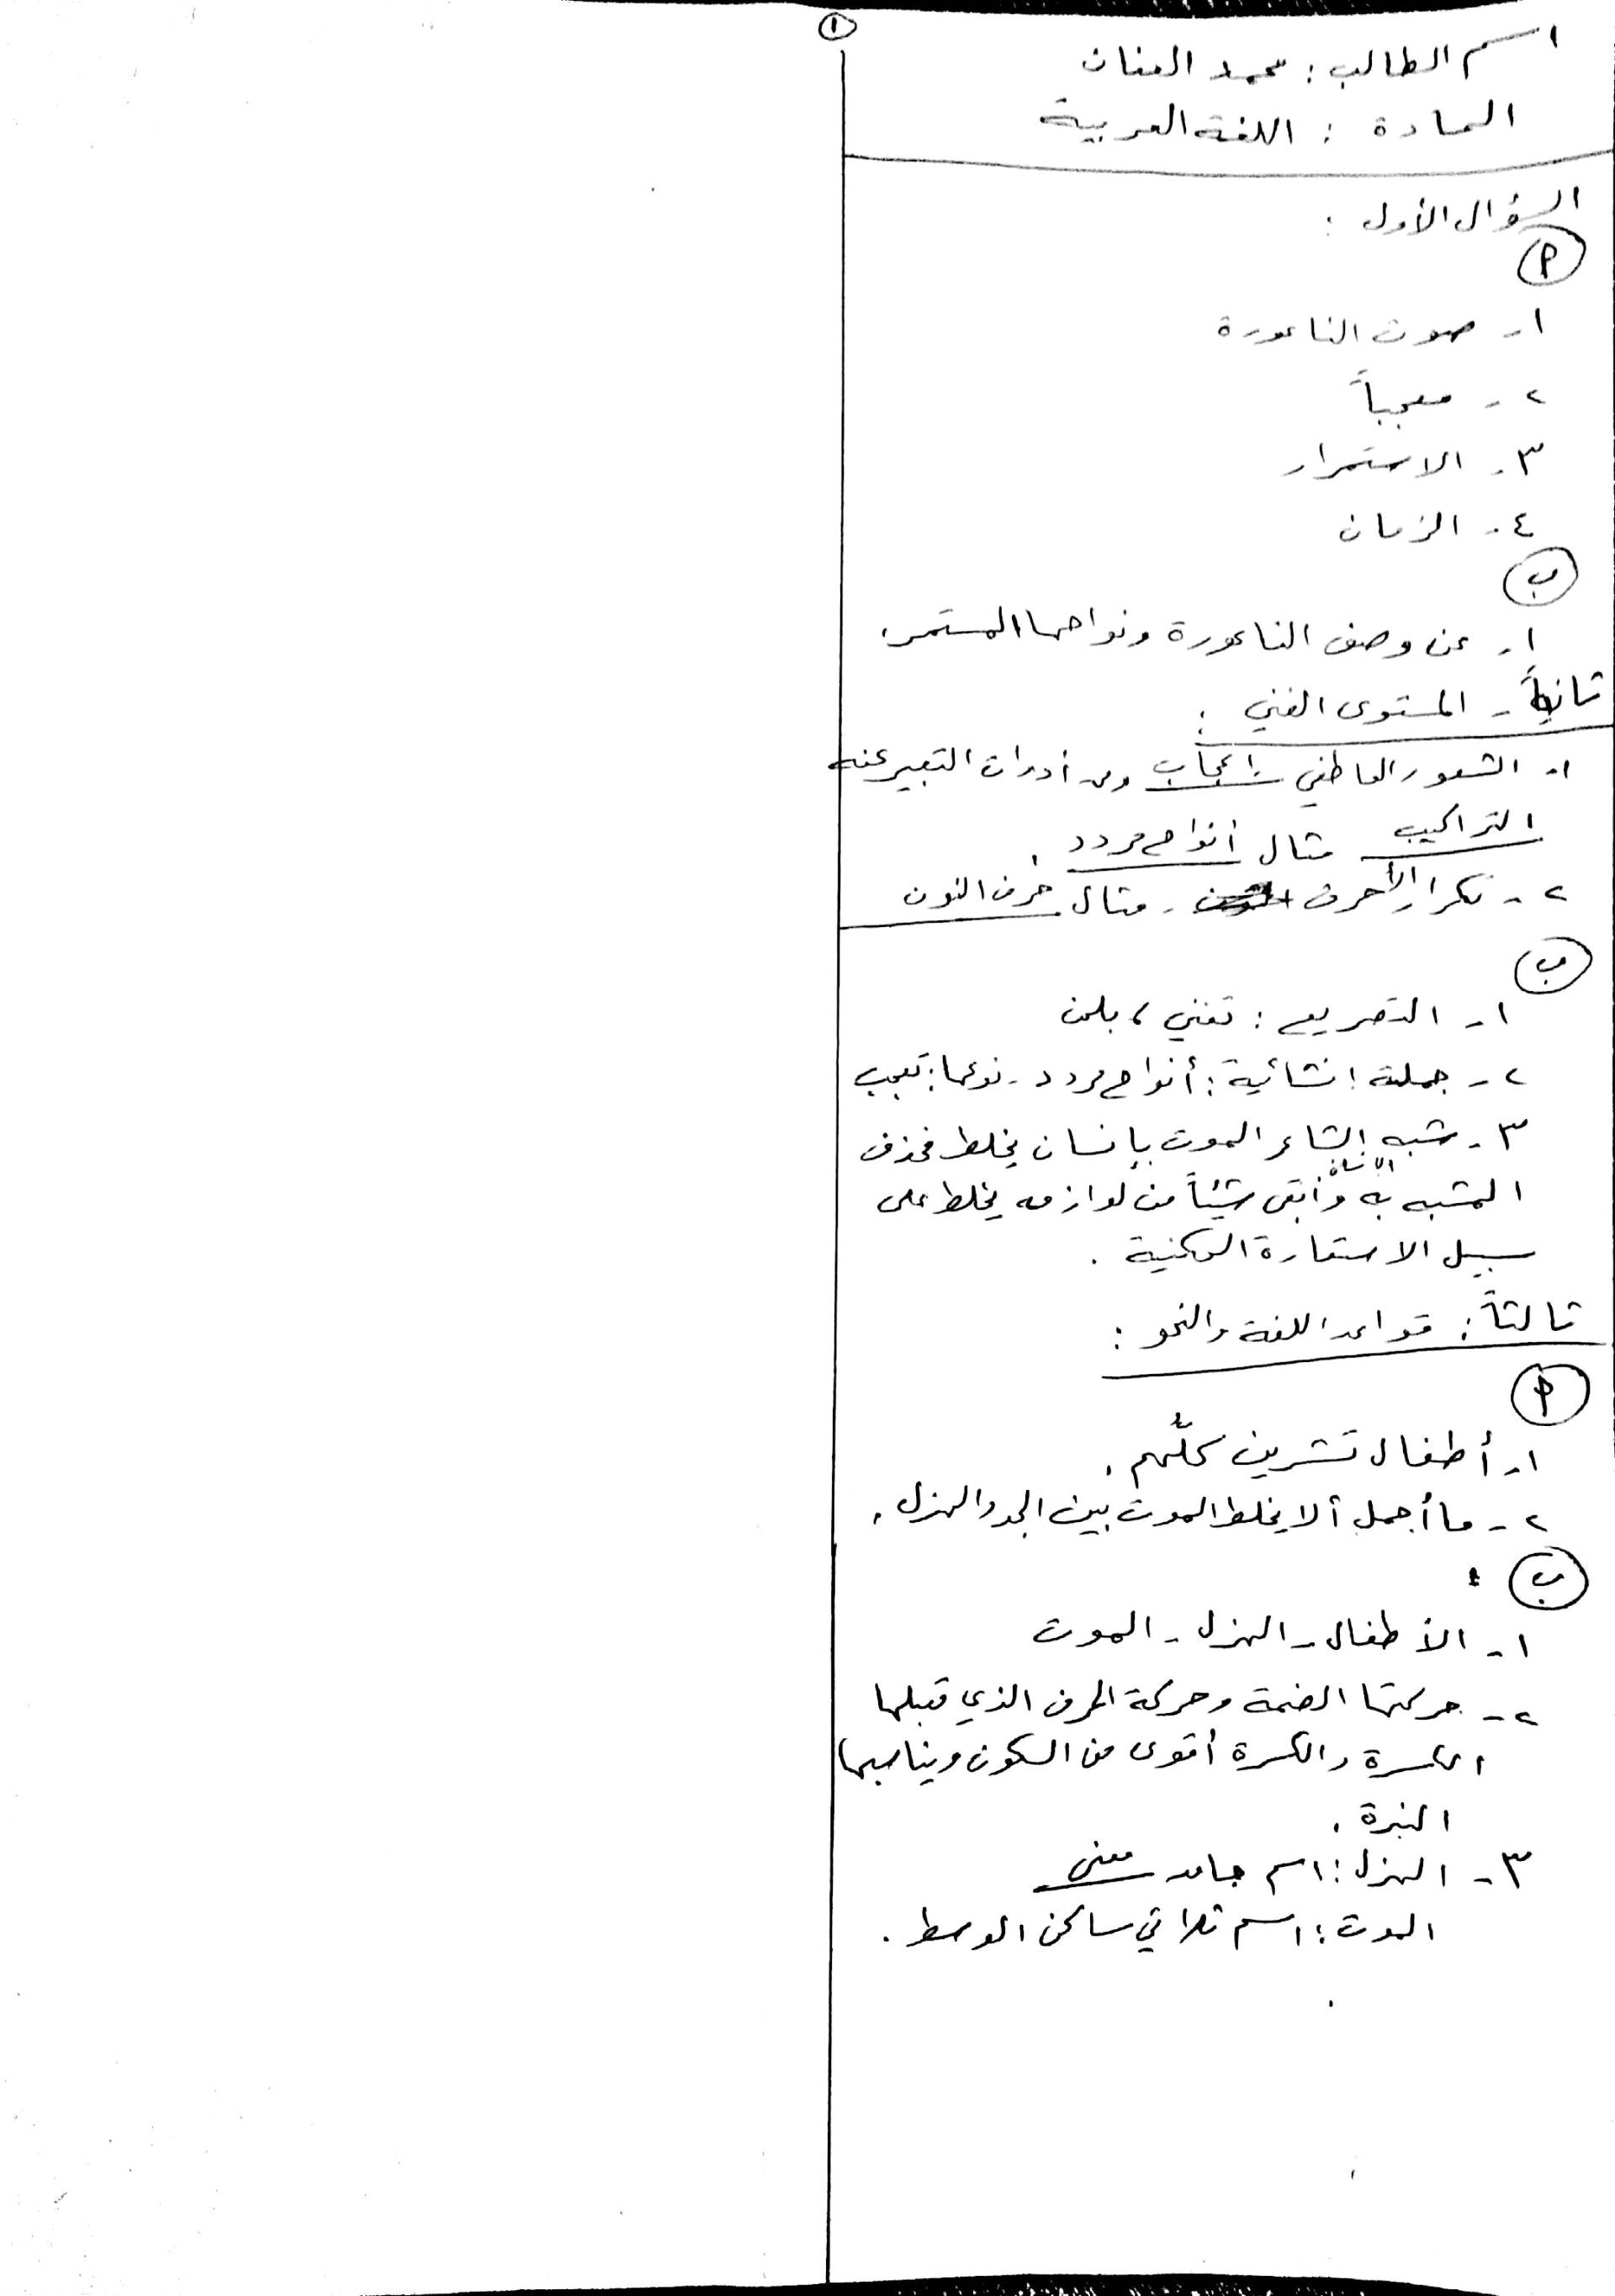 ١
اسم الطالب : محمد العنان
المادة : اللغة العربية
السؤال الأول :
أ
١- صوت الناعورة
٢- معجباً
٣- الاستمرار
٤- الزمان
ب
١- عن وصف الناعورة ونواحها المستمر.
ثانياً - المستوى الفني :
١- الشعور العاطفي إعجاب ومن أدوات التعبير عنه
التراكيب مثال أنواح مردد .
٢- تكرار الأحرف - مثال حرف النون
ب
١- التصريع : تغني ، بلحن
٢- جملة إنشائية : أنواح مردد - نوعها : تعجب
٣- شبه الشاعر الموت بإنسان يخلط فحذف
المشبه به الإنسان وأبقى شيئاً من لوازمه يخلط على
سبيل الاستعارة المكنية .
ثالثاً : قواعد اللغة والنحو :
أ
١- أطفال تشرين كلّهم .
٢- ما أجمل ألا يخلط الموت بين الجد والهزل .
ب :
١- الأطفال - الهزل - الموت
٢- حركتها الضمة وحركة الحرف الذي قبلها
الكسرة والكسرة أقوى من السكون ويناسبها
النبرة .
٣- الهزل : اسم جامد معنى
الموت : اسم ثلاثي ساكن الوسط .